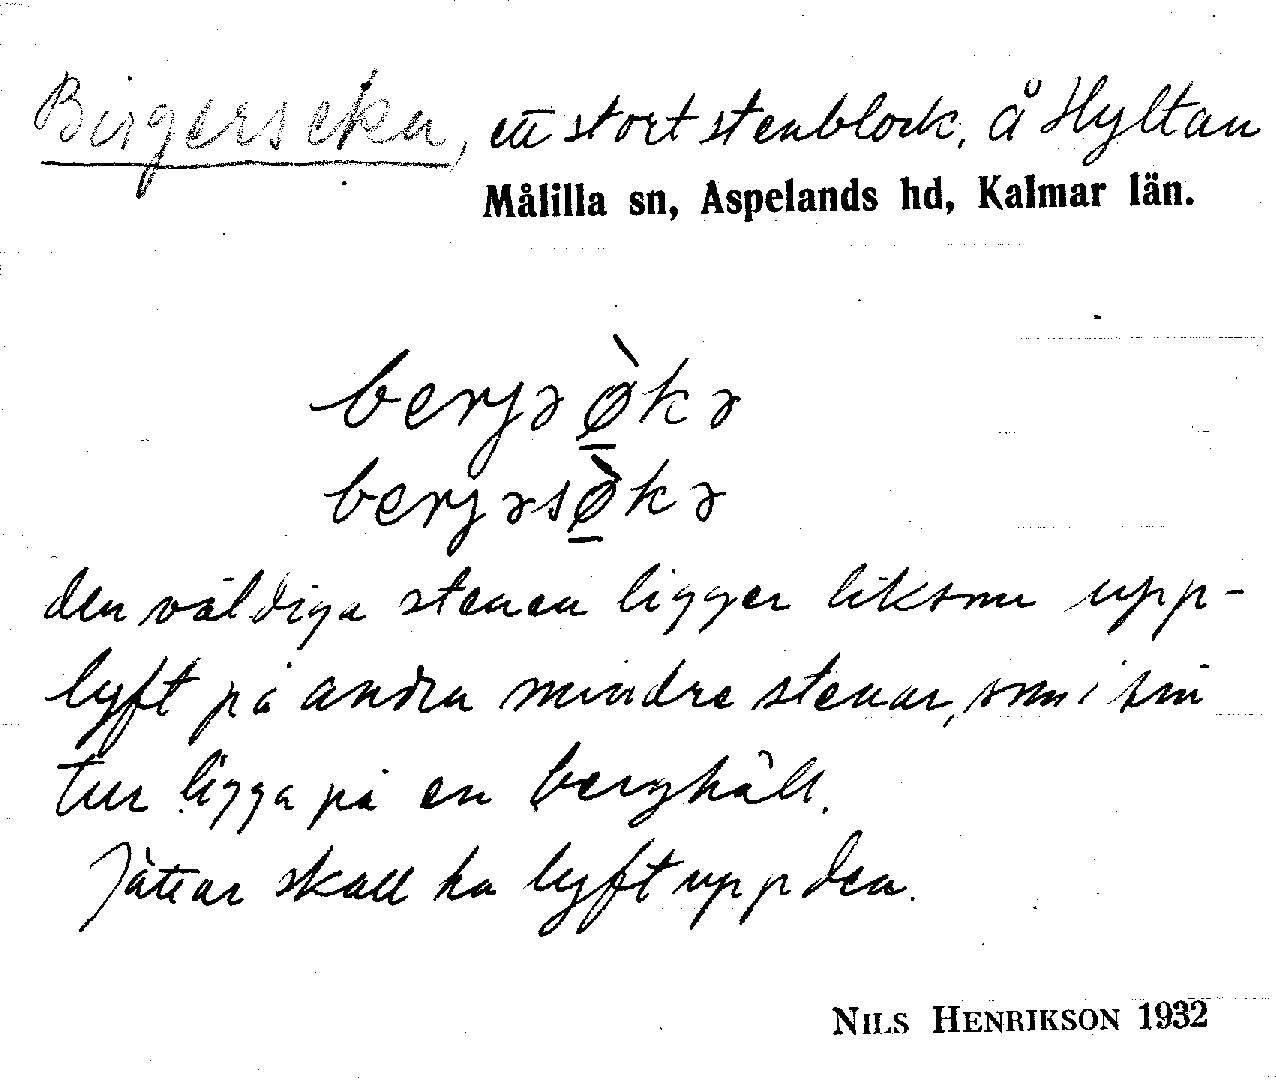 Birgerseka, ett stort stenblock, å Hyltan
Målilla sn, Aspelands hd, Kalmar län.
berjə ø̱̀kə
berjəsø̱̀kə
den väldiga stenen ligger liksom upp-
lyft på andra mindre stenar, som i sin
tur ligga på en berghäll.
Jättar skall ha lyft upp den.
NILS HENRIKSON 1932